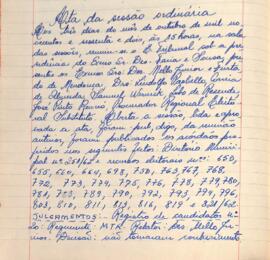 Ata da sessão ordinária
Aos três dias do mês de outubro de mil no-
vecentos e sessenta e dois, às 15 horas, na sala
das sessões, reuniu-se o E. Tribunal sob a pre-
sidência do Exmo Sr. Dro. Faria e Sousa, pre-
sentes os Exmos Srs. Drs. Mello Junior,
de Mendonça, Dro. Lindolfo Garcia
de Almeida,
José Procurador Regional Eleito-
ral Substituto. Aberta a sessão, lida e apro-
vada a ata, foram, pelo digo, da reunião
anterior, foram publicados os acordãos pro-
feridos nos seguintes feitos: Diretório Munici-
pal nº 251/62 e recursos eleitorais nos: 650,
655, 660, 664, 698, 750, 763, 767, 768,
772, 773, 774, 775, 776, 778, 779, 780
784, 785, 789, 790, 792, 793, 794, 796,
803, 810, 811, 813, 816, 819 e 321/62.
JULGAMENTOS: - Registro de candidatos nº
20: Requerente, MTR. Relator: des. Mello Ju-
nior. Decisão: não tomaram conhecimento